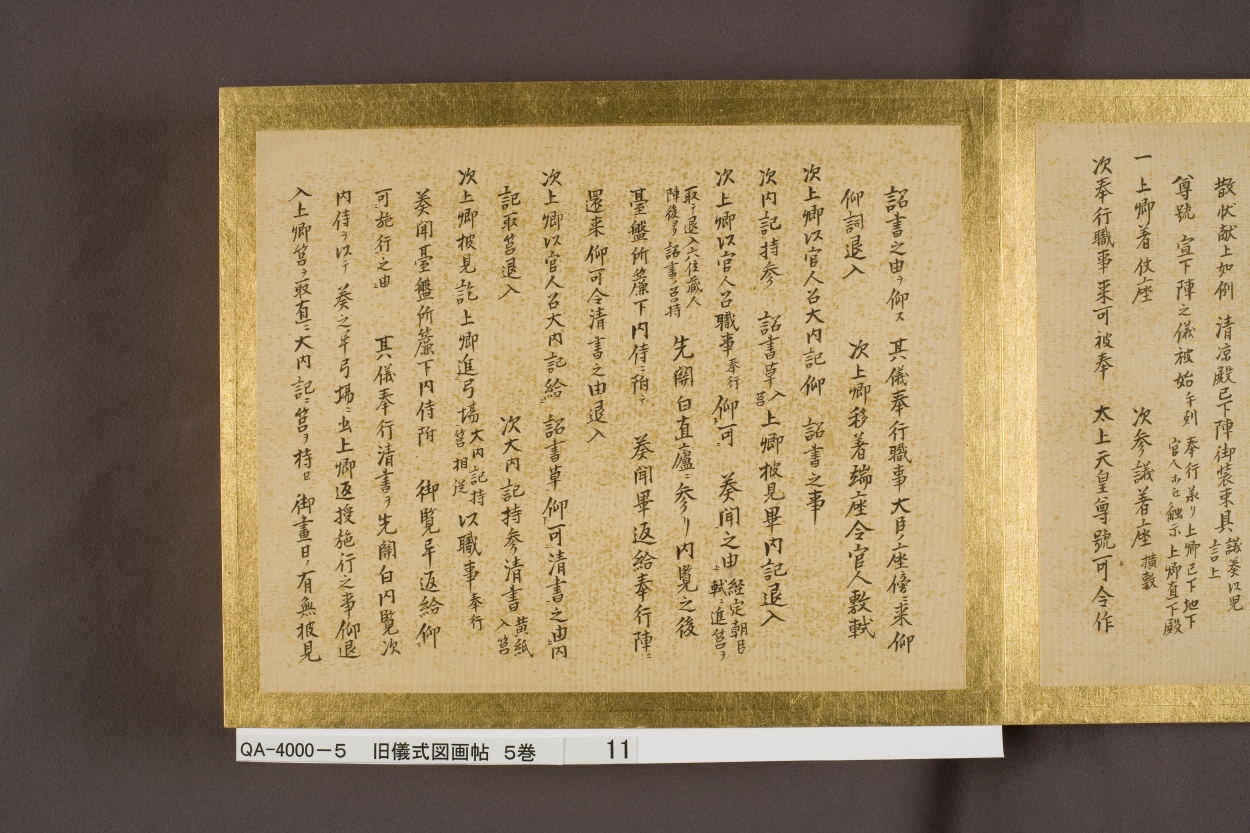 散状献上如例　清凉殿已下陣御装束具議奏以児言上
尊號　宣下陣之儀被始午刻奉行承リ上卿已下地下官人ホ江触示上卿直下殿
一上卿着仗座　次参議着座横敷
次奉行職事来可被奉　太上天皇尊號可令作
詔書之由ヲ仰ス　其儀奉行職事大臣ノ座傍ニ来仰
仰詞退入　次上卿移着端座令官人敷軾
次上卿以官人召大内記仰　詔書之事
次内記持参　詔書草入筥上卿披見畢内記退入
次上卿以官人召職事奉行仰可　奏聞之由経定朝臣軾ニ進筥ヲ
取テ退入六位蔵人陣後ヨリ詔書ノ筥持　先關白直廬ニ参リ内覧之後
臺盤所簾下内侍ニ附テ　奏聞畢返給奉行陣ニ
還来仰可令清書之由退入
次上卿以官人召大内記給　詔書草仰可清書之由内
記取筥退入　次大内記持参清書黄紙入筥
次上卿披見訖上卿進弓場大内記持筥相従以職事奉行
奏聞臺盤所簾下内侍附　御覧早返給仰
可施行之由　其儀奉行清書ヲ先關白内覧次
内侍ヲ以テ奏之畢弓場ニ出上卿返授施行之事仰退
入上卿筥ヲ取直ニ大内記ニ筥ヲ持セ御畫日ノ有無披見
QA-4000-5　旧儀式図画帖　5巻　11